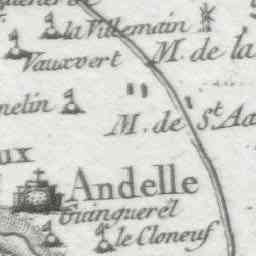 la Villemain
Vauxvert
M. de la
nelin
M. de St. Aa
ux
Andelle
Guinquerel
le Cloneuf